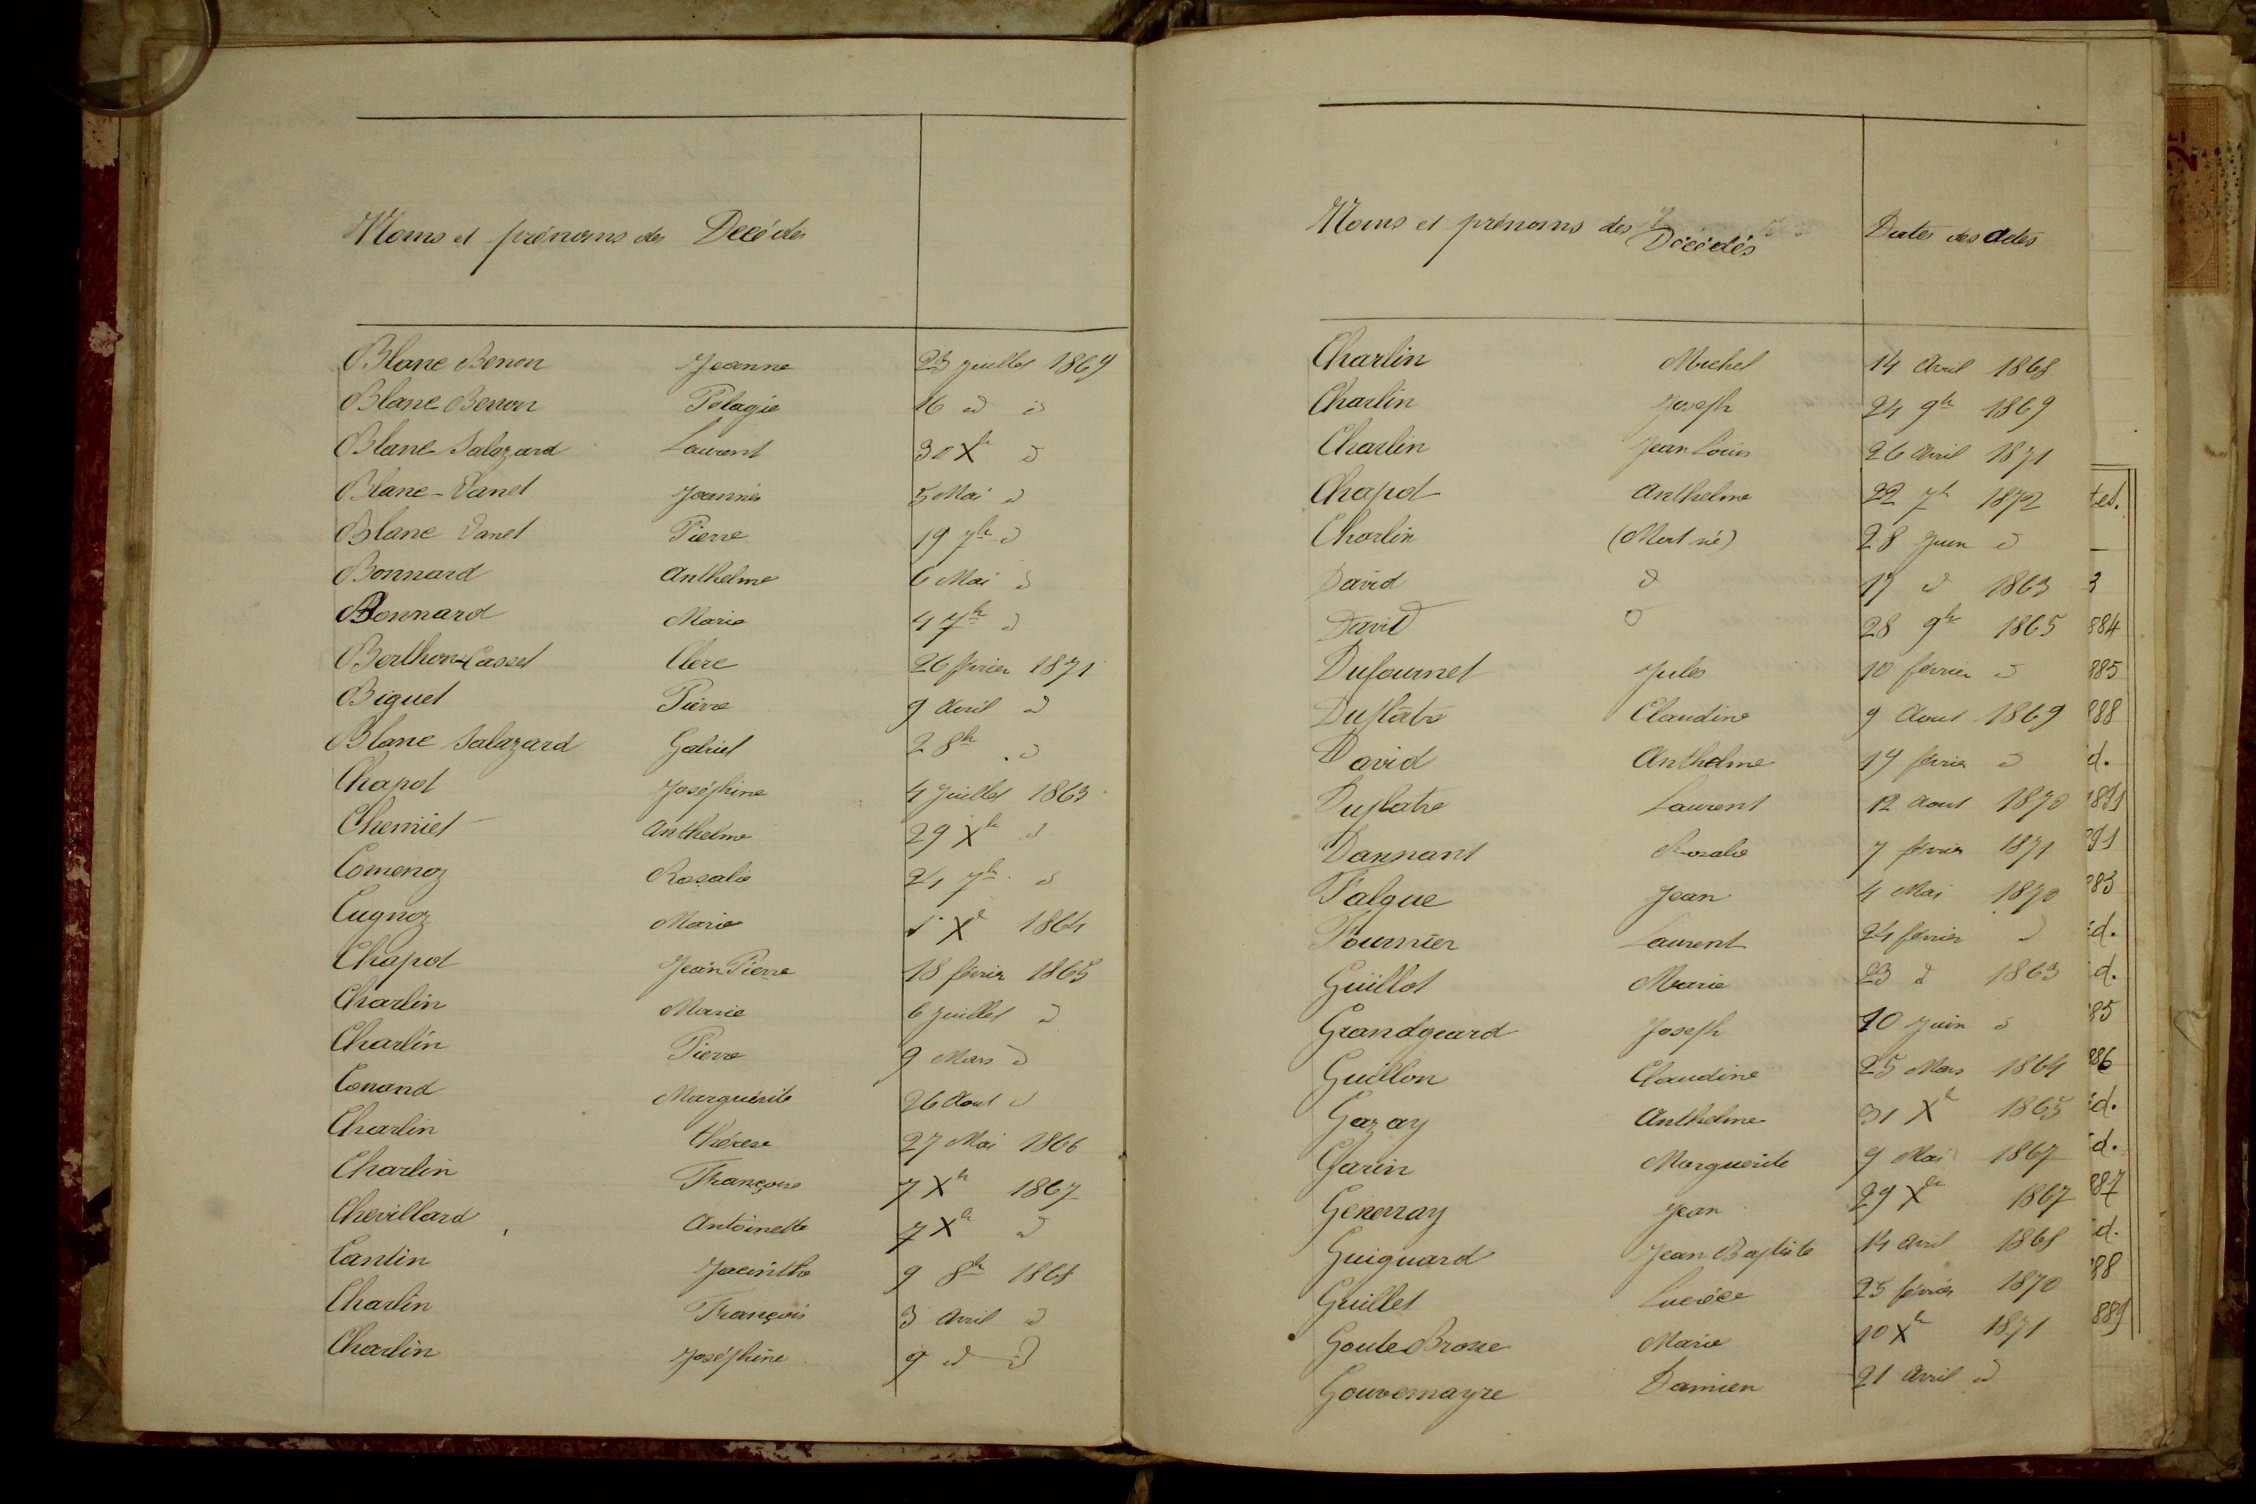 Noms et prénoms des Decédés
Blanc Benon Jeanne 23 juillet 1869
Blanc Benon Pelagie 16 d d
Blanc Salazard Laurent 30 Xbr d
Blanc-Vanet Joannès 5 Mai d
Blanc Vanet Pierre 19 7br d
Bonnard Anthelme 6 Mai d
Bonnard Marie 4 7br d
Berthon-Casset Clere 26 février 1871
Biguet Pierre 9 Avril d
Blanc Salazard Gabriel 2 8br d
Chapot Joséphine 4 Juillet 1863
Chemiet Anthelme 29 Xbr d
Comenoz Rosalie 24 7br d
Cugnoz Marie 1r Xe 1864
Chapot Jean Pierre 18 février 1865
Charlin Marie 6 Juillet d
Charlin Pierre 9 Mars d
Conand Marguérite 26 Aout d
Charlin thérese 27 Mai 1866
Charlin Françoise 7 Xbr 1867
Chevillard Antoinette 7 Xbr d
Cantin Jacinthe 9 8br 1868
Charlin François 3 Avril d
Charlin Joséphine 9 d d
Noms et prénoms des Décédés Dates des actes
Charlin Michel 14 Avril 1868
Charlin Joseph 24 9br 1869
Charlin Jean Louis 26 Avril 1871
Chapot Anthelme 22 7br 1872
Charlin (Mort né) 28 Juin d
David d 17 d 1863
David d 28 9br 1865
Dufournet Jules 10 février d
Duplâtre Claudine 9 Aout 1869
David Anthelme 17 février d
Duplatre Laurent 12 Aout 1870
Dannant Rosalie 7 février 1871
Falque Jean 4 Mai 1870
Fournier Laurent 24 février d
Guillot Marie 23 d 1863
Grandgeard Joseph 10 Juin d
Guillon Claudine 25 Mars 1864
Gazay Anthelme 31 Xe 1865
Garin Marguerite 9 Mai 1867
Generray Jean 29 Xbr 1867
Guiguard Jean Baptiste 14 Avril 1868
Guillet 25 février 1870
Goute Brosse Marie 10 Xbr 1871
Gouvernayre Damien 21 Avril d
tes.
3
884
885
888
d.
891
883
id.
id.
85
886
id.
id.
887
id.
88
889